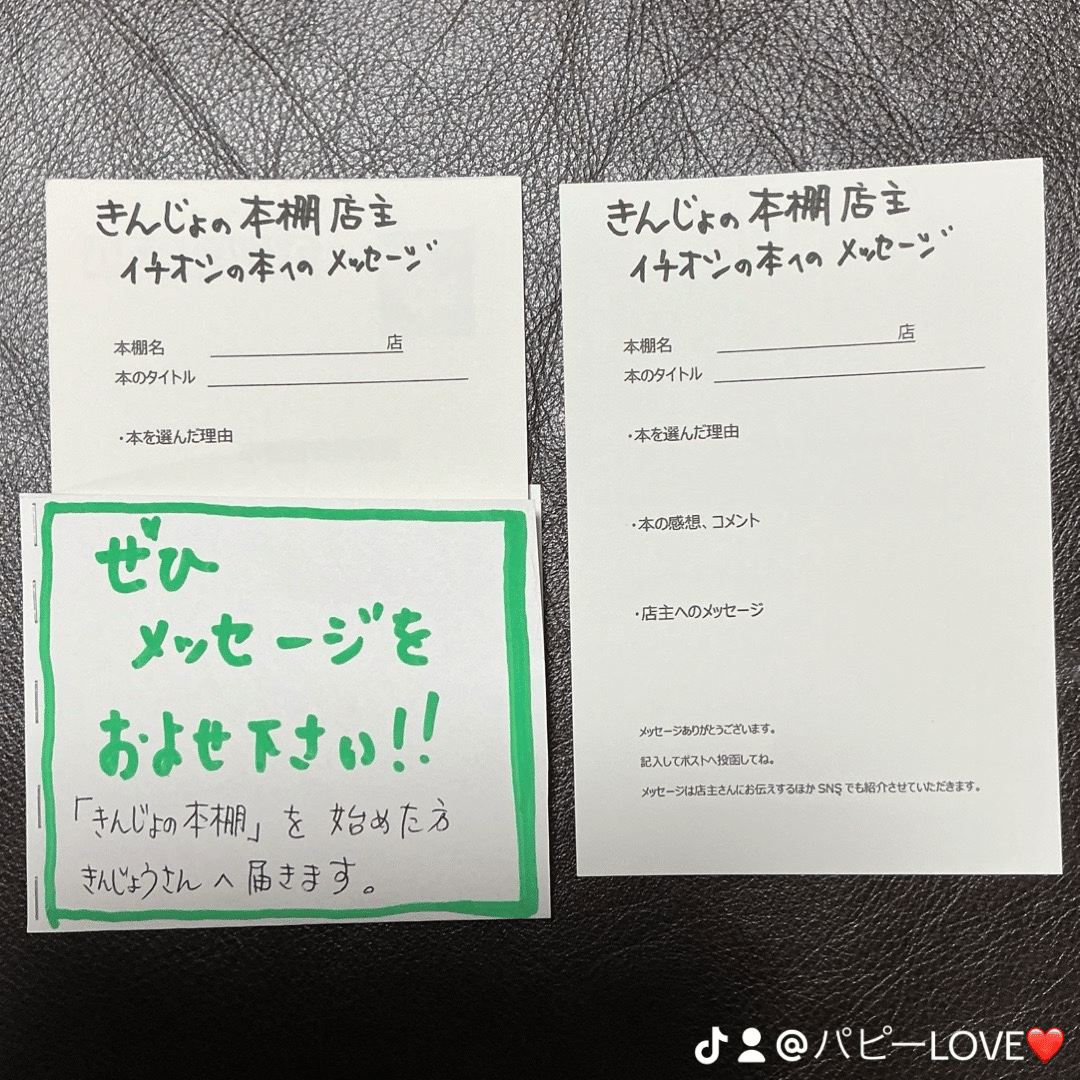 きんじょの本棚店主
イチオシの本へのメッセージ
本棚名 店
本のタイトル
・本を選んだ理由
ぜひ
メッセージを
およせ下さい!!
「きんじょの本棚」を始めた方
きんじょうさんへ届きます。
きんじょの本棚店主
イチオシの本へのメッセージ
本棚名 店
本のタイトル
・本を選んだ理由
・本の感想、コメント
・店主へのメッセージ
メッセージありがとうございます。
記入してポストへ投函してね。
メッセージは店主さんにお伝えするほか SNS でも紹介させていただきます。
@パピーLOVE❤️